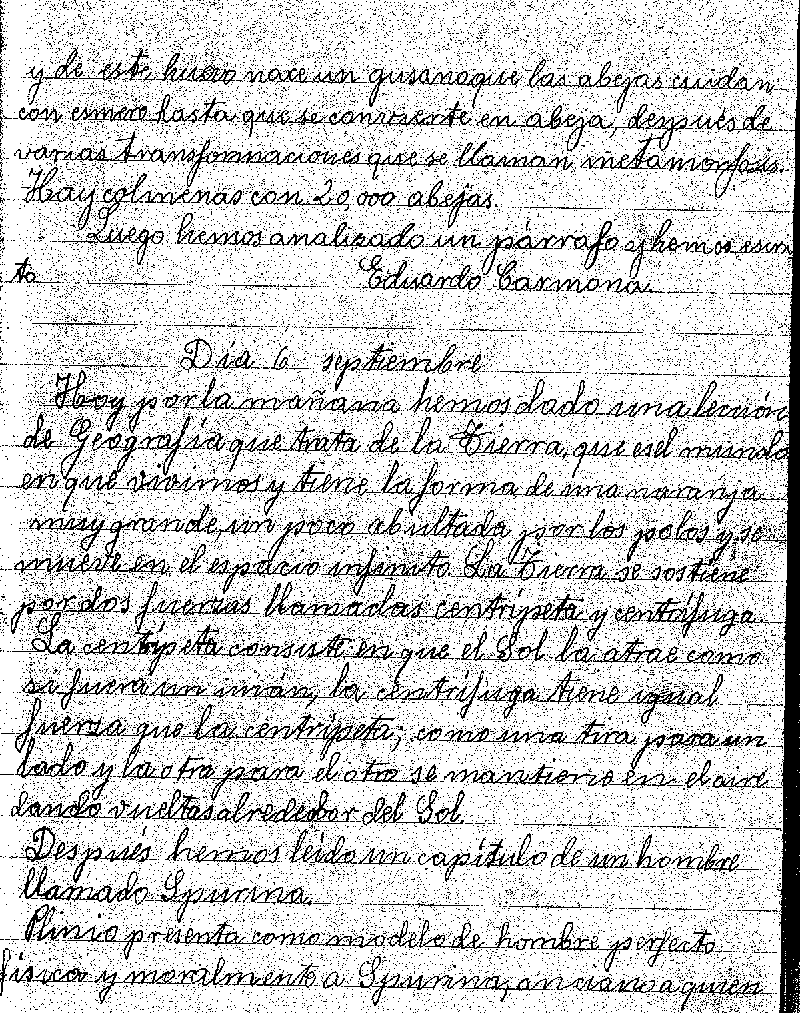 y de este huevo nace un gusano que las abejas cuidan
con esmero hasta que se convierte en abeja, deypués de
varias transformaciones que se llaman metamorfosis.
Hay colmenas con 20,000 abejas.
Luego hemos analizado un párrafo y hemos escri
to
Eduardo Carmona.
Día 6 septiembre
Hoy por la mañana hemos dado una lección
de Geografía que trata de la Tierra, que es el mundo
en que vivimos y tiene la forma de una naranja
muy grande, un poco abultada por los polos y se
mueve en el espacio infinito. La Tierra se sostiene
por dos fuerzas llamadas centrípeta y centrífuga.
La centrípeta consiste en que el Sol la atrae como
si fuera un imán, la centrífuga tiene igual
fuerza que la centrípeta; como una tira para un
lado y la otra para el otro se mantiene en el aire
dando vueltas alrededor del Sol.
Después hemos leído un capítulo de un hombre
llamado Spurina.
Plinio presenta como modelo de hombre perfecto
física y moralmente a Spurina, anciano a quien